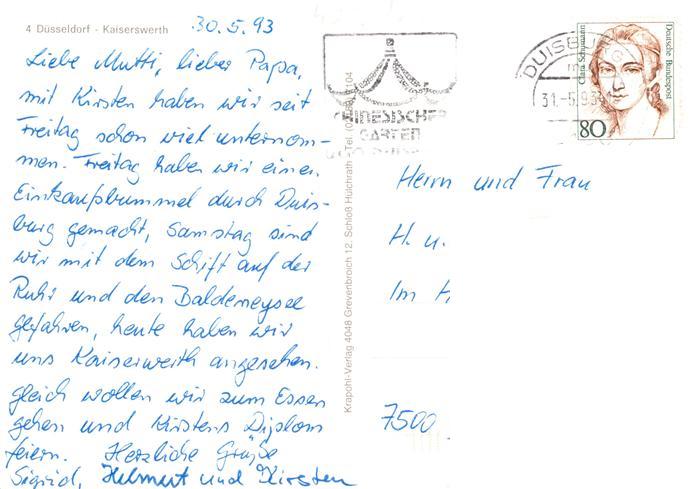 4 Düsseldorf - Kaiserswerth
30.5.93
Liebe Mutti, lieber Papa,
mit Kirsten haben wir seit
Freitag schon viel unternom-
men. Freitag haben wir einen
Einkaufsbummel durch Duis-
burg gemacht, Samstag sind
wir mit dem Schiff auf der
Ruhr und den Baldeneysee
gefahren, heute haben wir
uns Kaiserwerth angesehen.
gleich wollen wir zum Essen
gehen und Kirstens Diplom
feiern. Herzliche Grüße
Sigrid, Helmut und Kirsten
Krapohl-Verlag 4048 Grevenbroich 12, Schloß Hülchrath
CHINESISCHER
GARTEN
DUISBURG
31.-5.93
Clara Schumann
Deutsche Bundespost
80
Herrn und Frau
H. u.
Im
7500